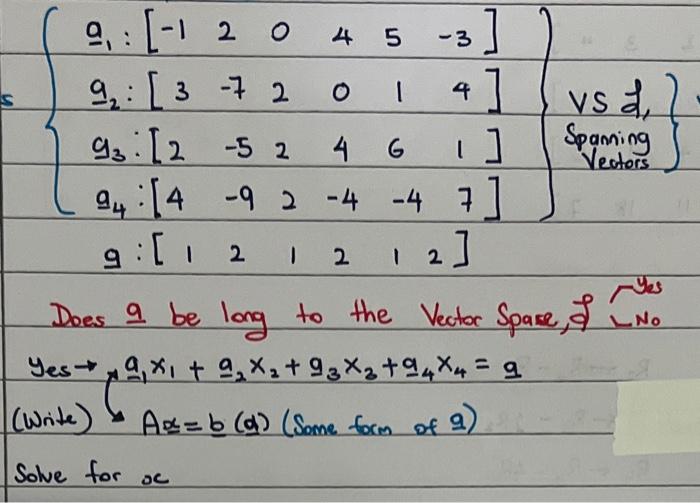 a₁ : [-1 2 0 4 5 -3]
a₂ : [3 -7 2 0 1 4]
a₃ : [2 -5 2 4 6 1]
a₄ : [4 -9 2 -4 -4 7]
VS ℐ,
Spanning
Vectors
a : [1 2 1 2 1 2]
Does a be long to the Vector Space, ℐ
Yes
No
Yes → a₁x₁ + a₂x₂ + a₃x₃ + a₄x₄ = a
(Write) Ax = b (a) (Some form of a)
Solve for x